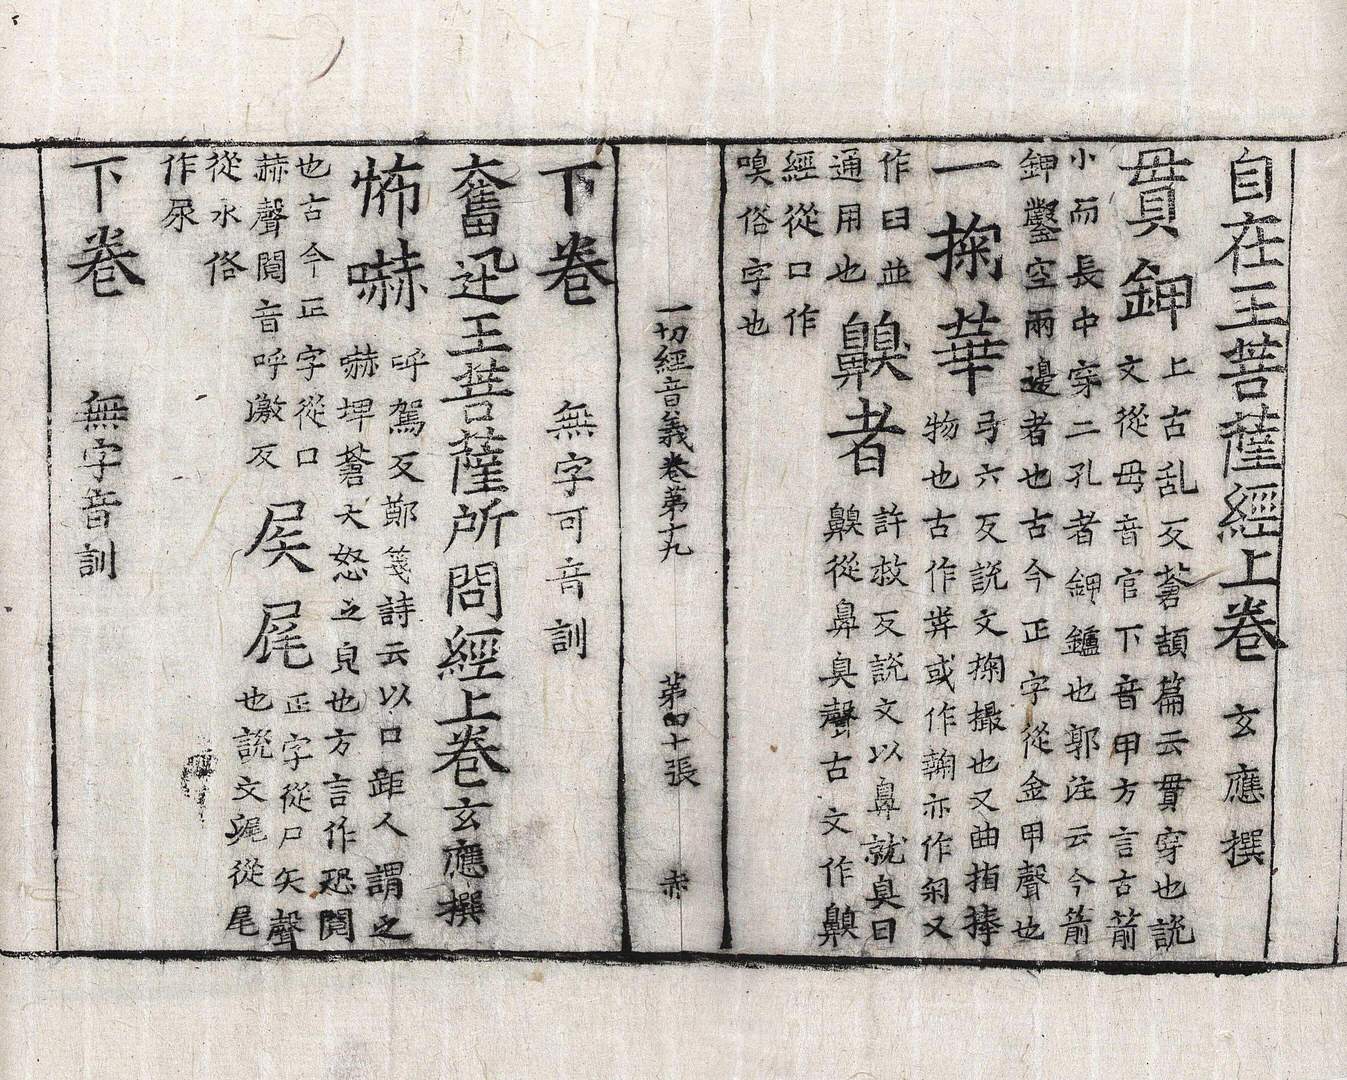 自在王菩薩經上卷 玄應撰
貫鉀 上古乱反蒼頡篇云貫穿也說
文從毋音官下音甲方言古箭
小而長中穿二孔者鉀鑪也郭注云今箭
鉀鑿空兩邊者也古今正字從金甲聲也
一掬華 弓六反說文掬撮也又曲指捧
物也古作𠦬或作䩭亦作匊又
作臼並
通用也 齅者 許救反說文以鼻就臭曰
齅從鼻臭聲古文作齅
經從口作
嗅俗字也
一切經音義卷第十九 第四十張 赤
下卷 無字可音訓
奮迅王菩薩所問經上卷 玄應撰
怖嚇 呼駕反鄭箋詩云以口距人謂之
嚇埤蒼大怒之皃也方言作恐䦧
也古今正字從口
赫聲䦧音呼激反 屎尾 正字從尸矢聲
也說文𡲰從尾
從水俗
作尿
下卷 無字音訓